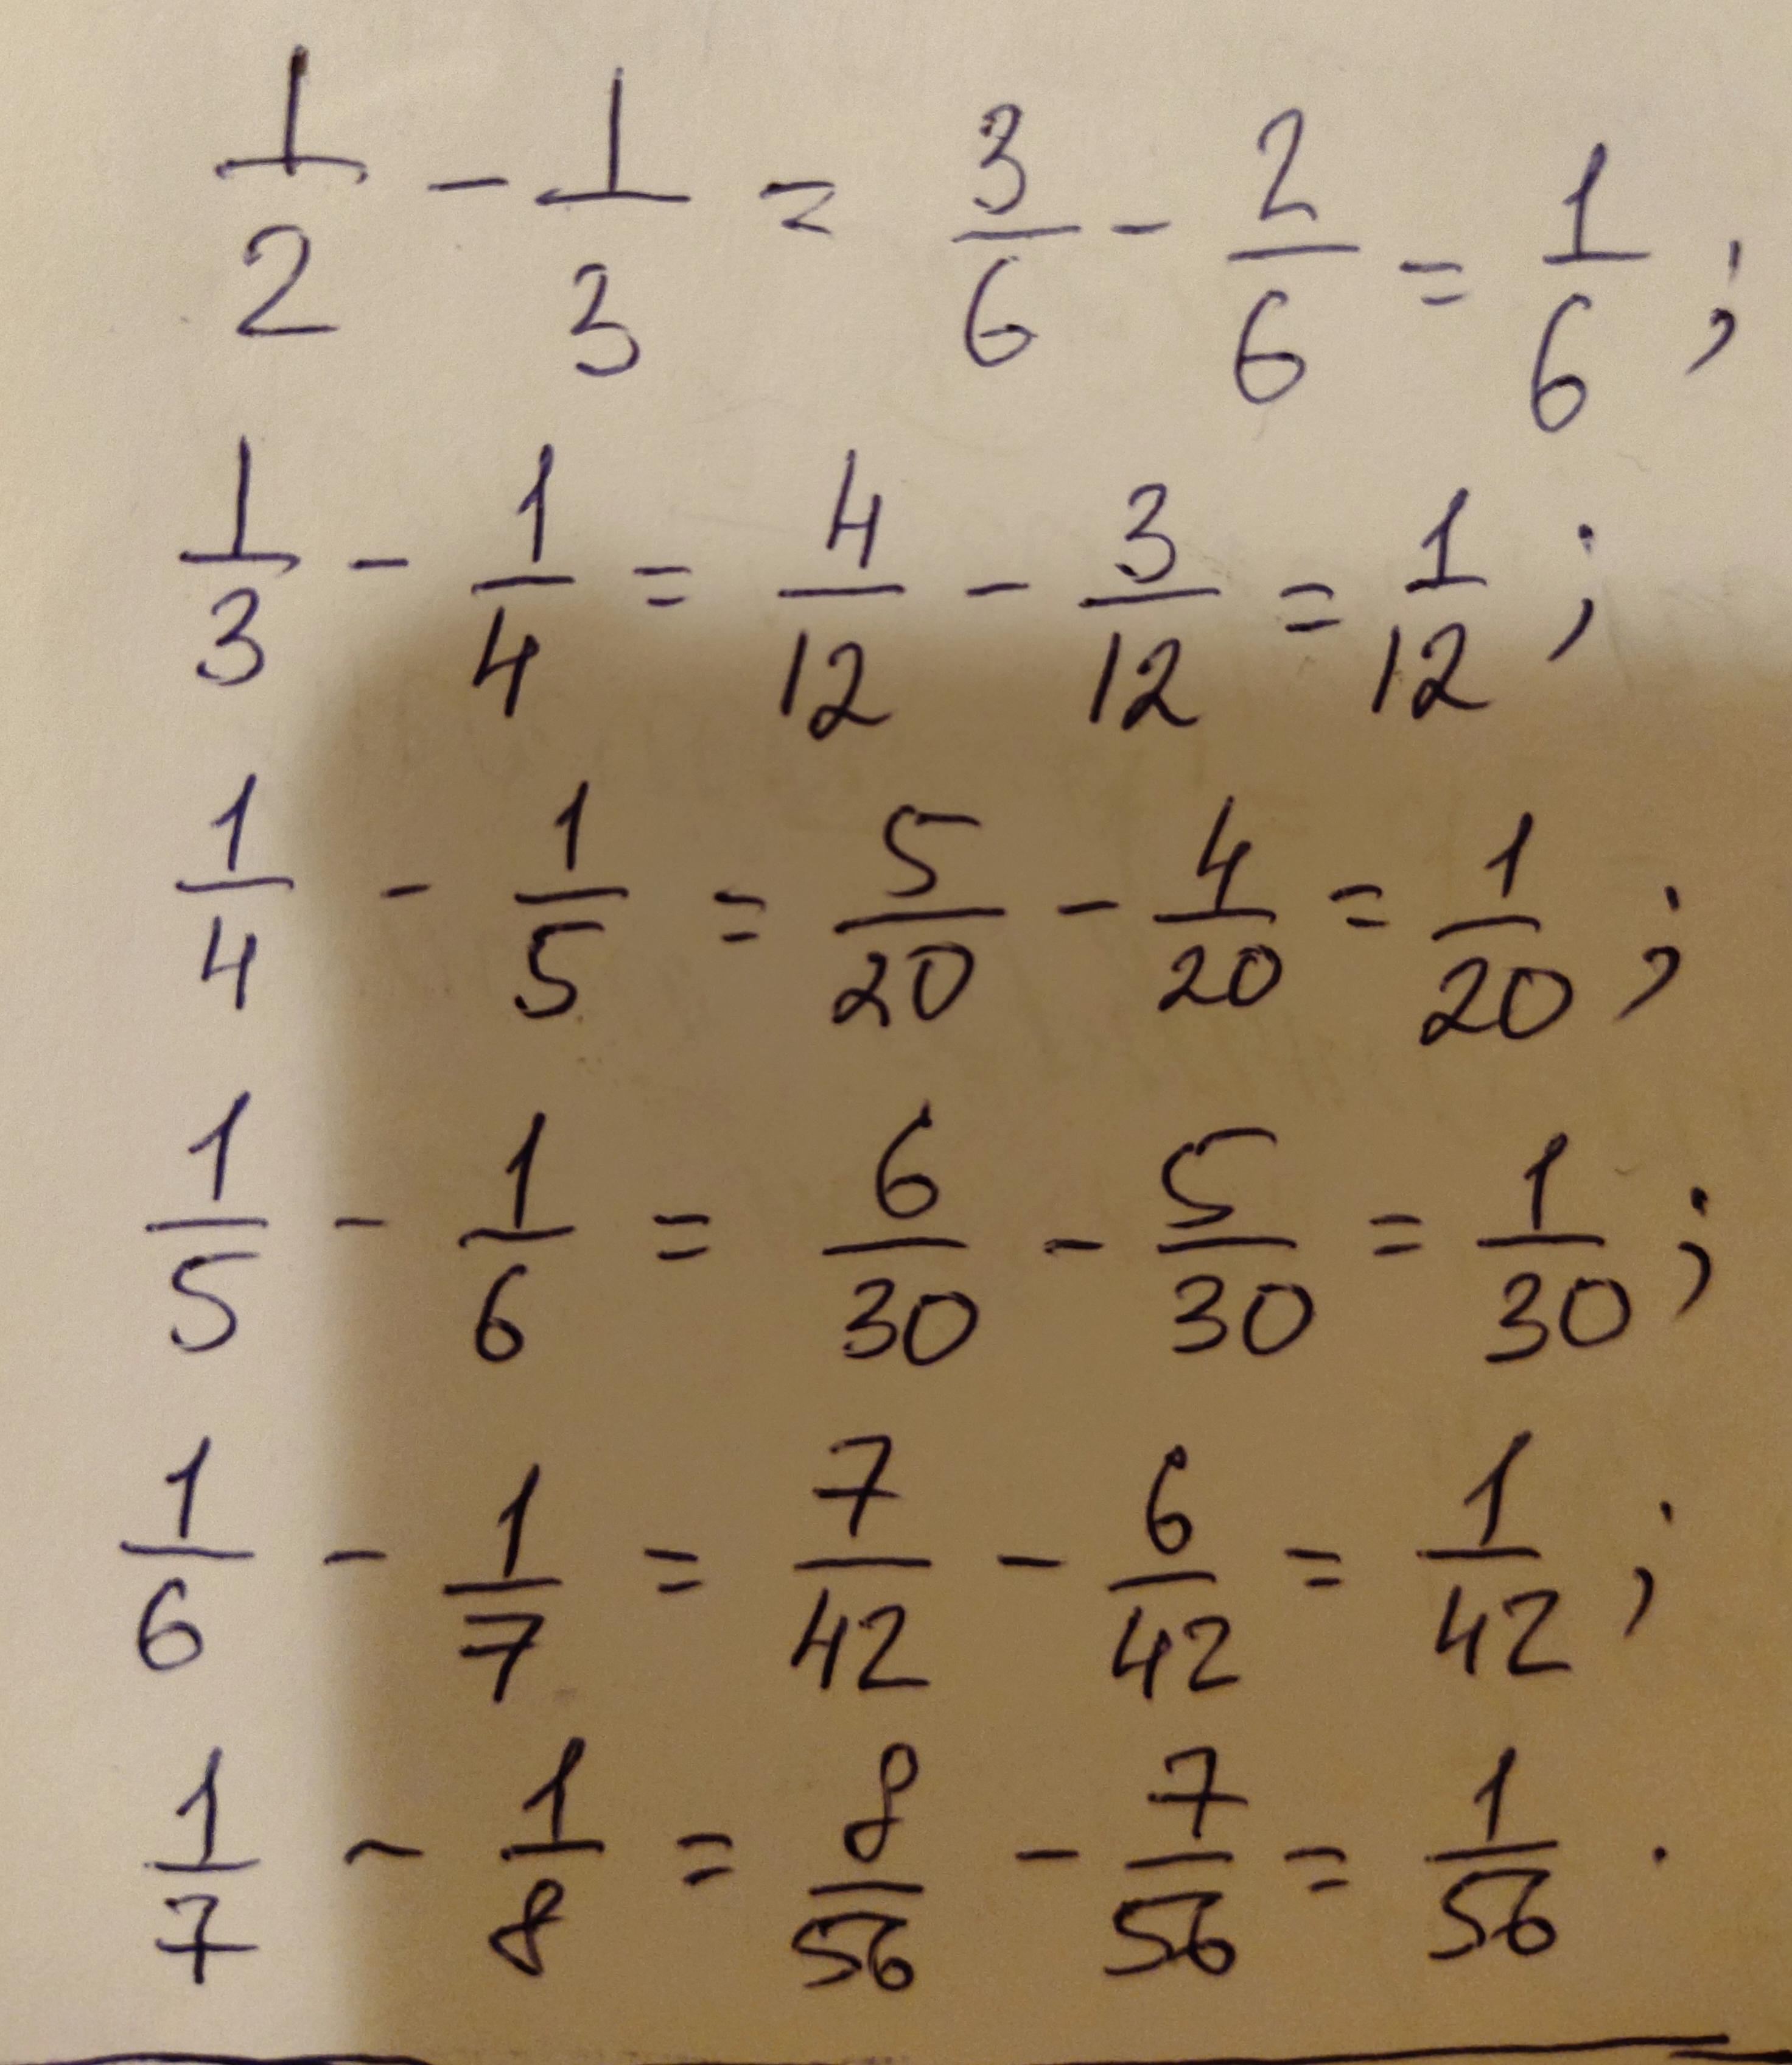 1/2 - 1/3 = 3/6 - 2/6 = 1/6 ;
1/3 - 1/4 = 4/12 - 3/12 = 1/12 ;
1/4 - 1/5 = 5/20 - 4/20 = 1/20 ;
1/5 - 1/6 = 6/30 - 5/30 = 1/30 ;
1/6 - 1/7 = 7/42 - 6/42 = 1/42 ;
1/7 - 1/8 = 8/56 - 7/56 = 1/56 .